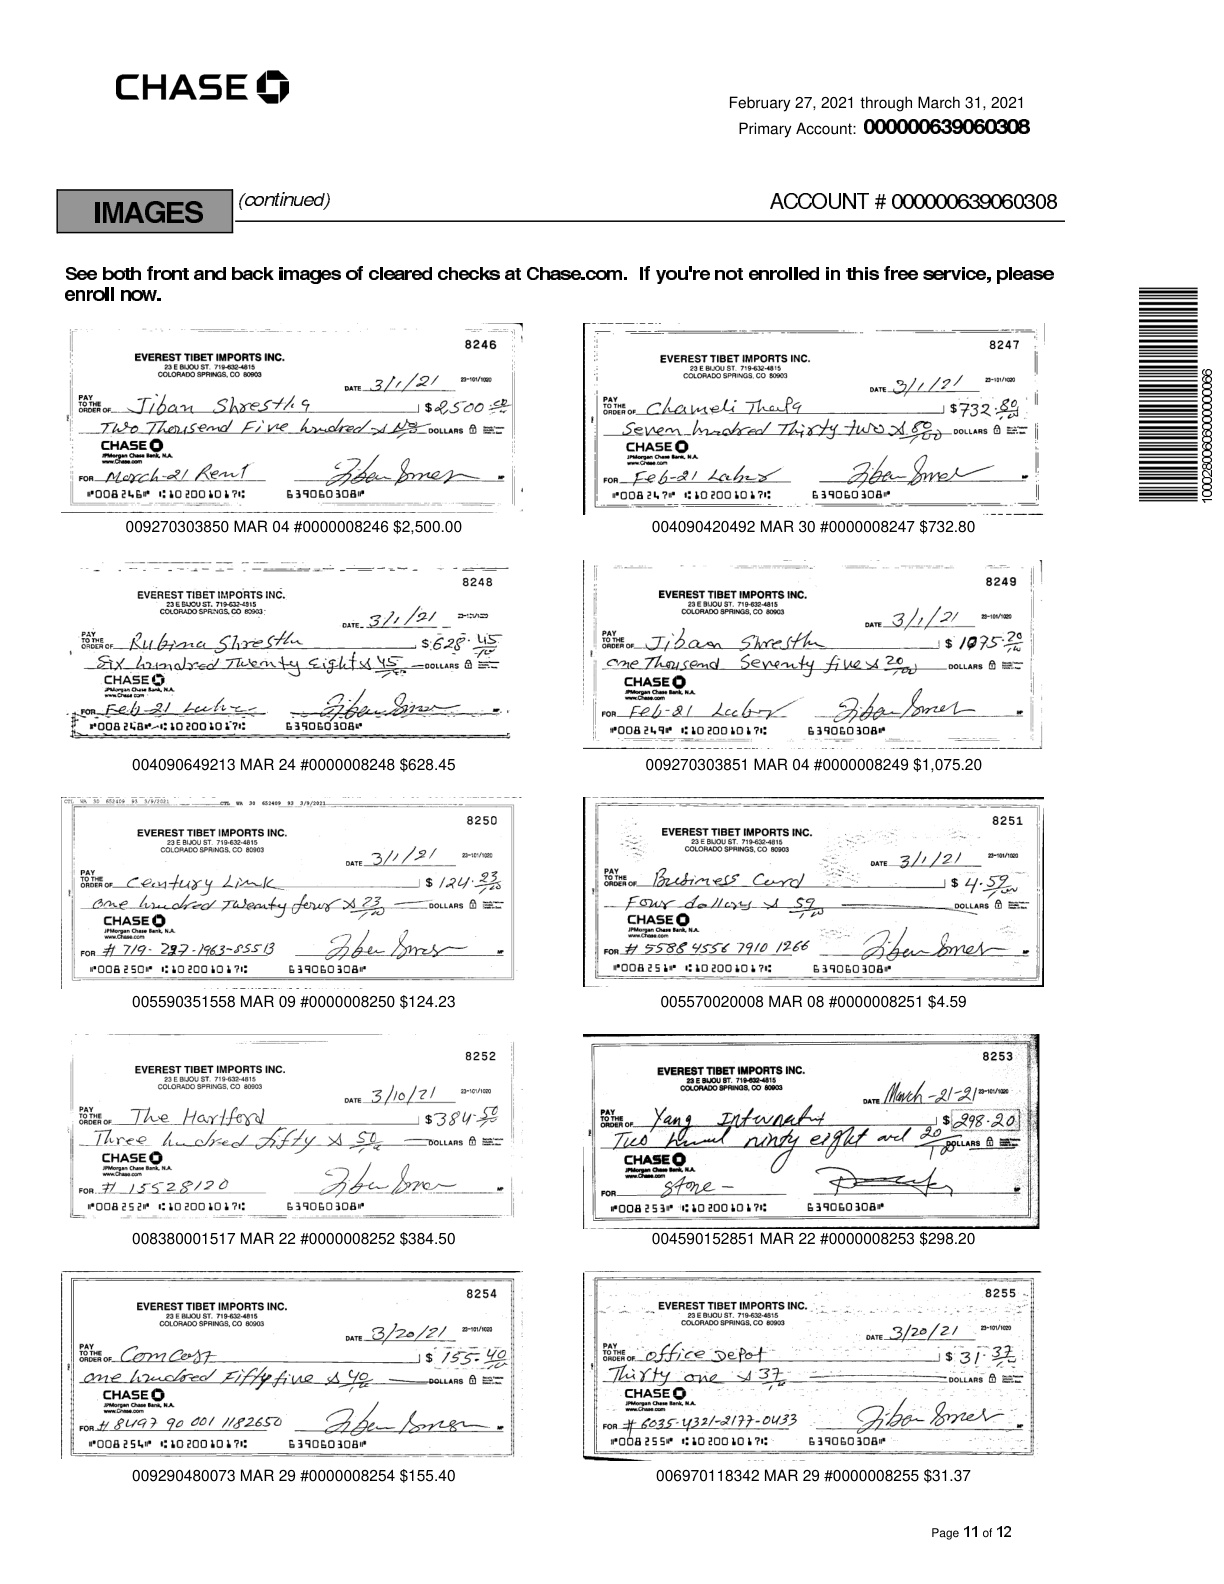 CHASE
February 27, 2021 through March 31, 2021
Primary Account: 000000639060308
IMAGES (continued) ACCOUNT # 000000639060308
See both front and back images of cleared checks at Chase.com. If you're not enrolled in this free service, please
enroll now.
8246
EVEREST TIBET IMPORTS INC.
23 E BIJOU ST. 719-632-4815
COLORADO SPRINGS, CO 80903
DATE 3/1/21 23-101/1020
PAY TO THE ORDER OF Jiban Shrestha $2,500.00
Two Thousand Five hundred & DOLLARS
CHASE
JPMorgan Chase Bank, N.A.
www.Chase.com
FOR March-21 Rent
008246 102001017 639060308
009270303850 MAR 04 #0000008246 $2,500.00
8247
EVEREST TIBET IMPORTS INC.
23 E BIJOU ST. 719-632-4815
COLORADO SPRINGS, CO 80903
DATE 3/1/21 23-101/1020
PAY TO THE ORDER OF Chameli Thapa $732.80/100
Seven hundred Thirty two & 80/100 DOLLARS
CHASE
JPMorgan Chase Bank, N.A.
www.Chase.com
FOR Feb-21 Labor
008247 102001017 639060308
004090420492 MAR 30 #0000008247 $732.80
8248
EVEREST TIBET IMPORTS INC.
23 E BIJOU ST. 719-632-4815
COLORADO SPRINGS, CO 80903
DATE 3/1/21 23-101/1020
PAY TO THE ORDER OF Rubina Shrestha $628.45/100
Six hundred Twenty Eight & 45/100 DOLLARS
CHASE
JPMorgan Chase Bank, N.A.
www.Chase.com
FOR Feb-21 Labor
008248 102001017 639060308
004090649213 MAR 24 #0000008248 $628.45
8249
EVEREST TIBET IMPORTS INC.
23 E BIJOU ST. 719-632-4815
COLORADO SPRINGS, CO 80903
DATE 3/1/21 23-101/1020
PAY TO THE ORDER OF Jiban Shrestha $1075.20/100
One Thousand Seventy five & 20/100 DOLLARS
CHASE
JPMorgan Chase Bank, N.A.
www.Chase.com
FOR Feb-21 Labor
008249 102001017 639060308
009270303851 MAR 04 #0000008249 $1,075.20
CTL WA 30 652409 93 3/9/2021 CTL WA 30 652409 93 3/9/2021
8250
EVEREST TIBET IMPORTS INC.
23 E BIJOU ST. 719-632-4815
COLORADO SPRINGS, CO 80903
DATE 3/1/21 23-101/1020
PAY TO THE ORDER OF Century Link $124.23/100
one hundred Twenty four & 23/100 DOLLARS
CHASE
JPMorgan Chase Bank, N.A.
www.Chase.com
FOR # 719-227-1963-855B
008250 102001017 639060308
005590351558 MAR 09 #0000008250 $124.23
8251
EVEREST TIBET IMPORTS INC.
23 E BIJOU ST. 719-632-4815
COLORADO SPRINGS, CO 80903
DATE 3/1/21 23-101/1020
PAY TO THE ORDER OF Business Card $4.59/100
Four dollars & 59/100 DOLLARS
CHASE
JPMorgan Chase Bank, N.A.
www.Chase.com
FOR # 5588 4556 7910 1266
008251 102001017 639060308
005570020008 MAR 08 #0000008251 $4.59
8252
EVEREST TIBET IMPORTS INC.
23 E BIJOU ST. 719-632-4815
COLORADO SPRINGS, CO 80903
DATE 3/10/21 23-101/1020
PAY TO THE ORDER OF The Hartford $384.50/100
Three hundred fifty & 50/100 DOLLARS
CHASE
JPMorgan Chase Bank, N.A.
www.Chase.com
FOR # 15528120
008252 102001017 639060308
008380001517 MAR 22 #0000008252 $384.50
8253
EVEREST TIBET IMPORTS INC.
23 E BIJOU ST. 719-632-4815
COLORADO SPRINGS, CO 80903
DATE March-21-21 23-101/1020
PAY TO THE ORDER OF Yang $298.20
ninty eight and 20/100 DOLLARS
CHASE
JPMorgan Chase Bank, N.A.
www.Chase.com
FOR stone -
008253 102001017 639060308
004590152851 MAR 22 #0000008253 $298.20
8254
EVEREST TIBET IMPORTS INC.
23 E BIJOU ST. 719-632-4815
COLORADO SPRINGS, CO 80903
DATE 3/20/21 23-101/1020
PAY TO THE ORDER OF Comcast $155.40/100
one hundred Fifty five & 40/100 DOLLARS
CHASE
JPMorgan Chase Bank, N.A.
www.Chase.com
FOR # 8497 90 001 1182650
008254 102001017 639060308
009290480073 MAR 29 #0000008254 $155.40
8255
EVEREST TIBET IMPORTS INC.
23 E BIJOU ST. 719-632-4815
COLORADO SPRINGS, CO 80903
DATE 3/20/21 23-101/1020
PAY TO THE ORDER OF office Depot $31.37/100
Thirty one & 37/100 DOLLARS
CHASE
JPMorgan Chase Bank, N.A.
www.Chase.com
FOR # 6035-4321-2177-0433
008255 102001017 639060308
006970118342 MAR 29 #0000008255 $31.37
10002800606000000066
Page 11 of 12